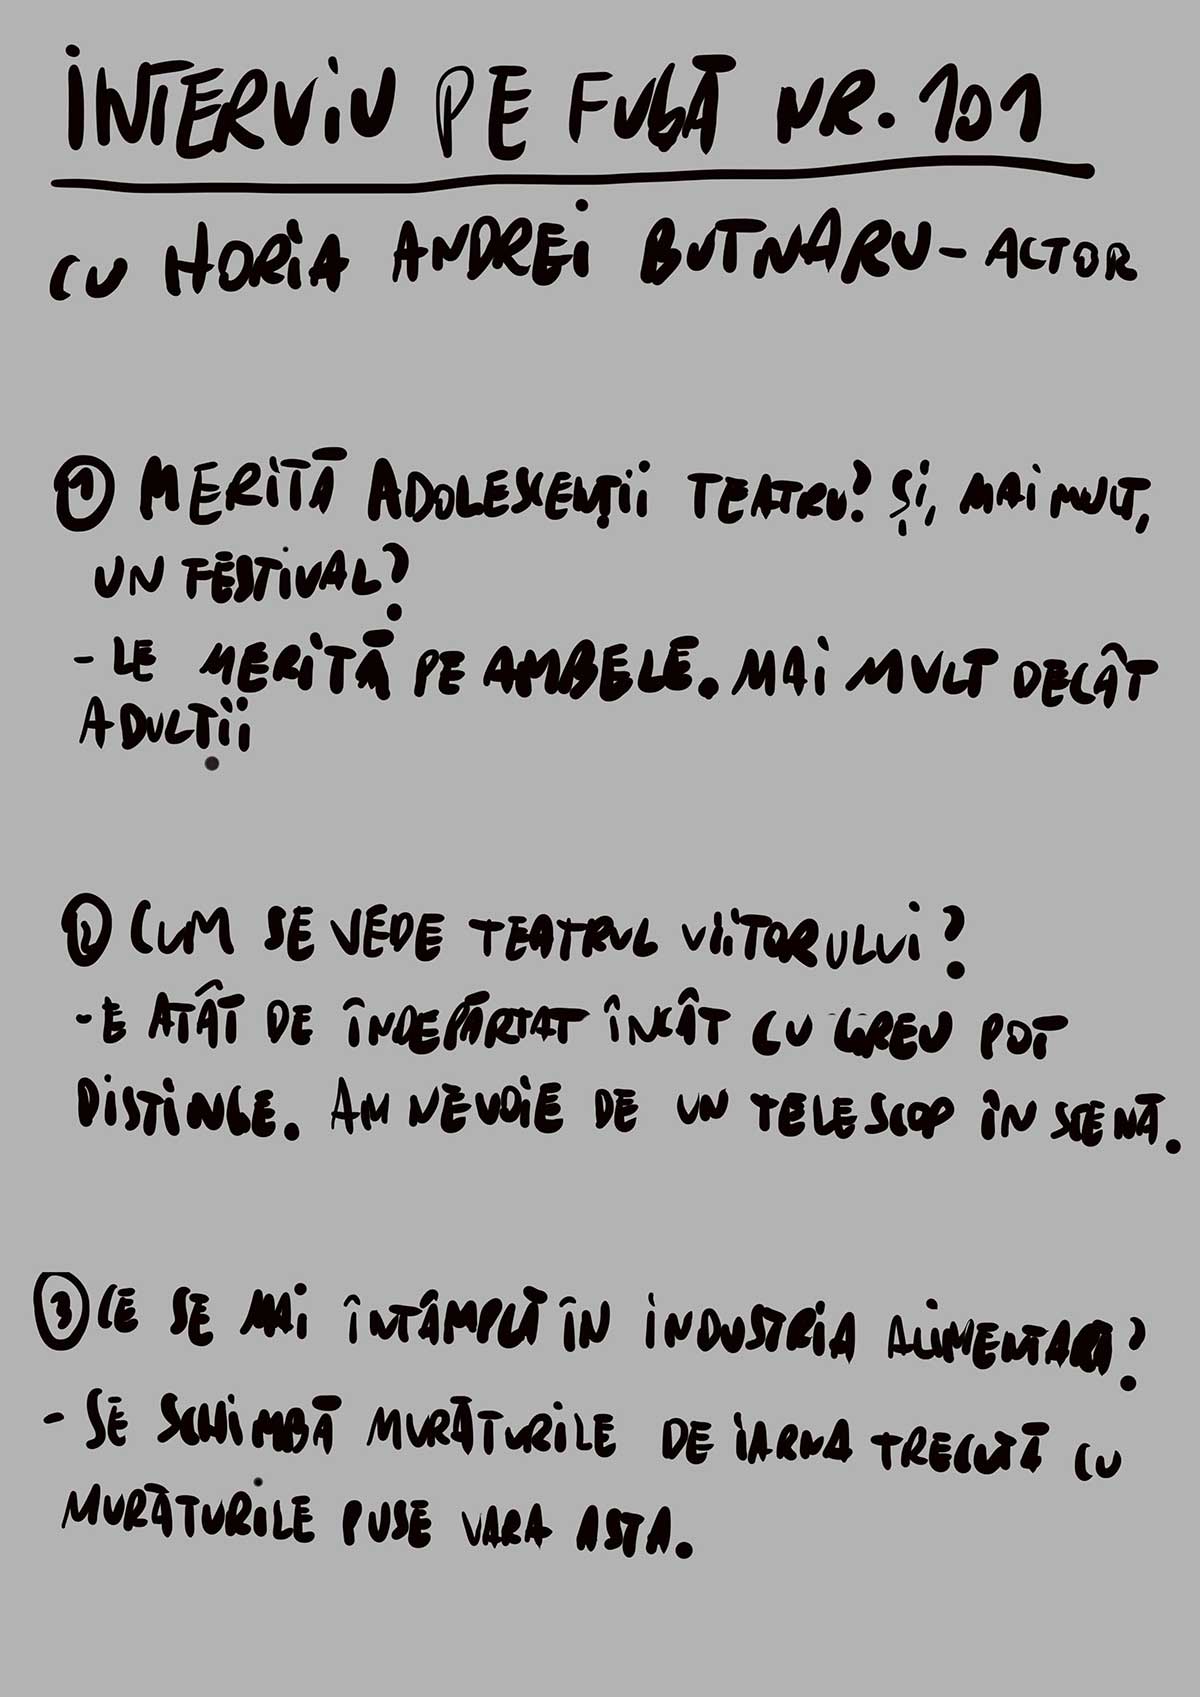 INTERVIU PE FUGĂ NR. 101
CU HORIA ANDREI BUTNARU - ACTOR
① MERITĂ ADOLESCENȚII TEATRU? ȘI, MAI MULT,
UN FESTIVAL?
- LE MERITĂ PE AMBELE. MAI MULT DECÂT
ADULȚII
② CUM SE VEDE TEATRUL VIITORULUI?
- E ATÂT DE ÎNDEPĂRTAT ÎNCÂT CU GREU POT
DISTINGE. AM NEVOIE DE UN TELESCOP ÎN SCENĂ.
③ CE SE MAI ÎNTÂMPLĂ ÎN INDUSTRIA ALIMENTARĂ?
- SE SCHIMBĂ MURĂTURILE DE IARNA TRECUTĂ CU
MURĂTURILE PUSE VARA ASTA.